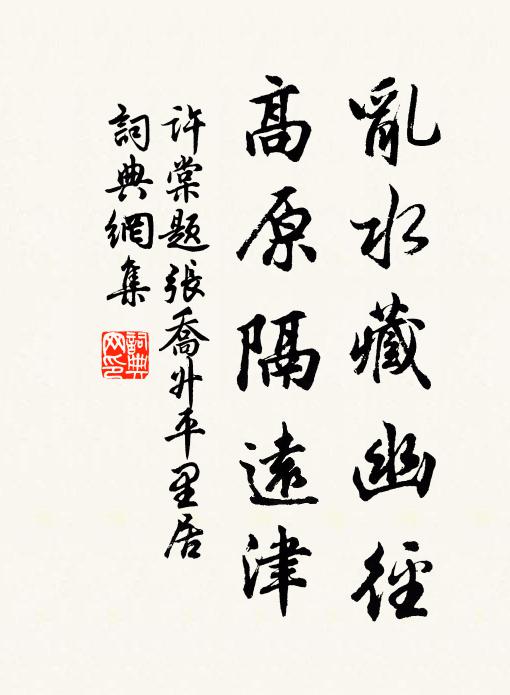 亂水藏幽徑
高原隔遠津
許棠題張喬升平里居
詞典網集
詞典網印